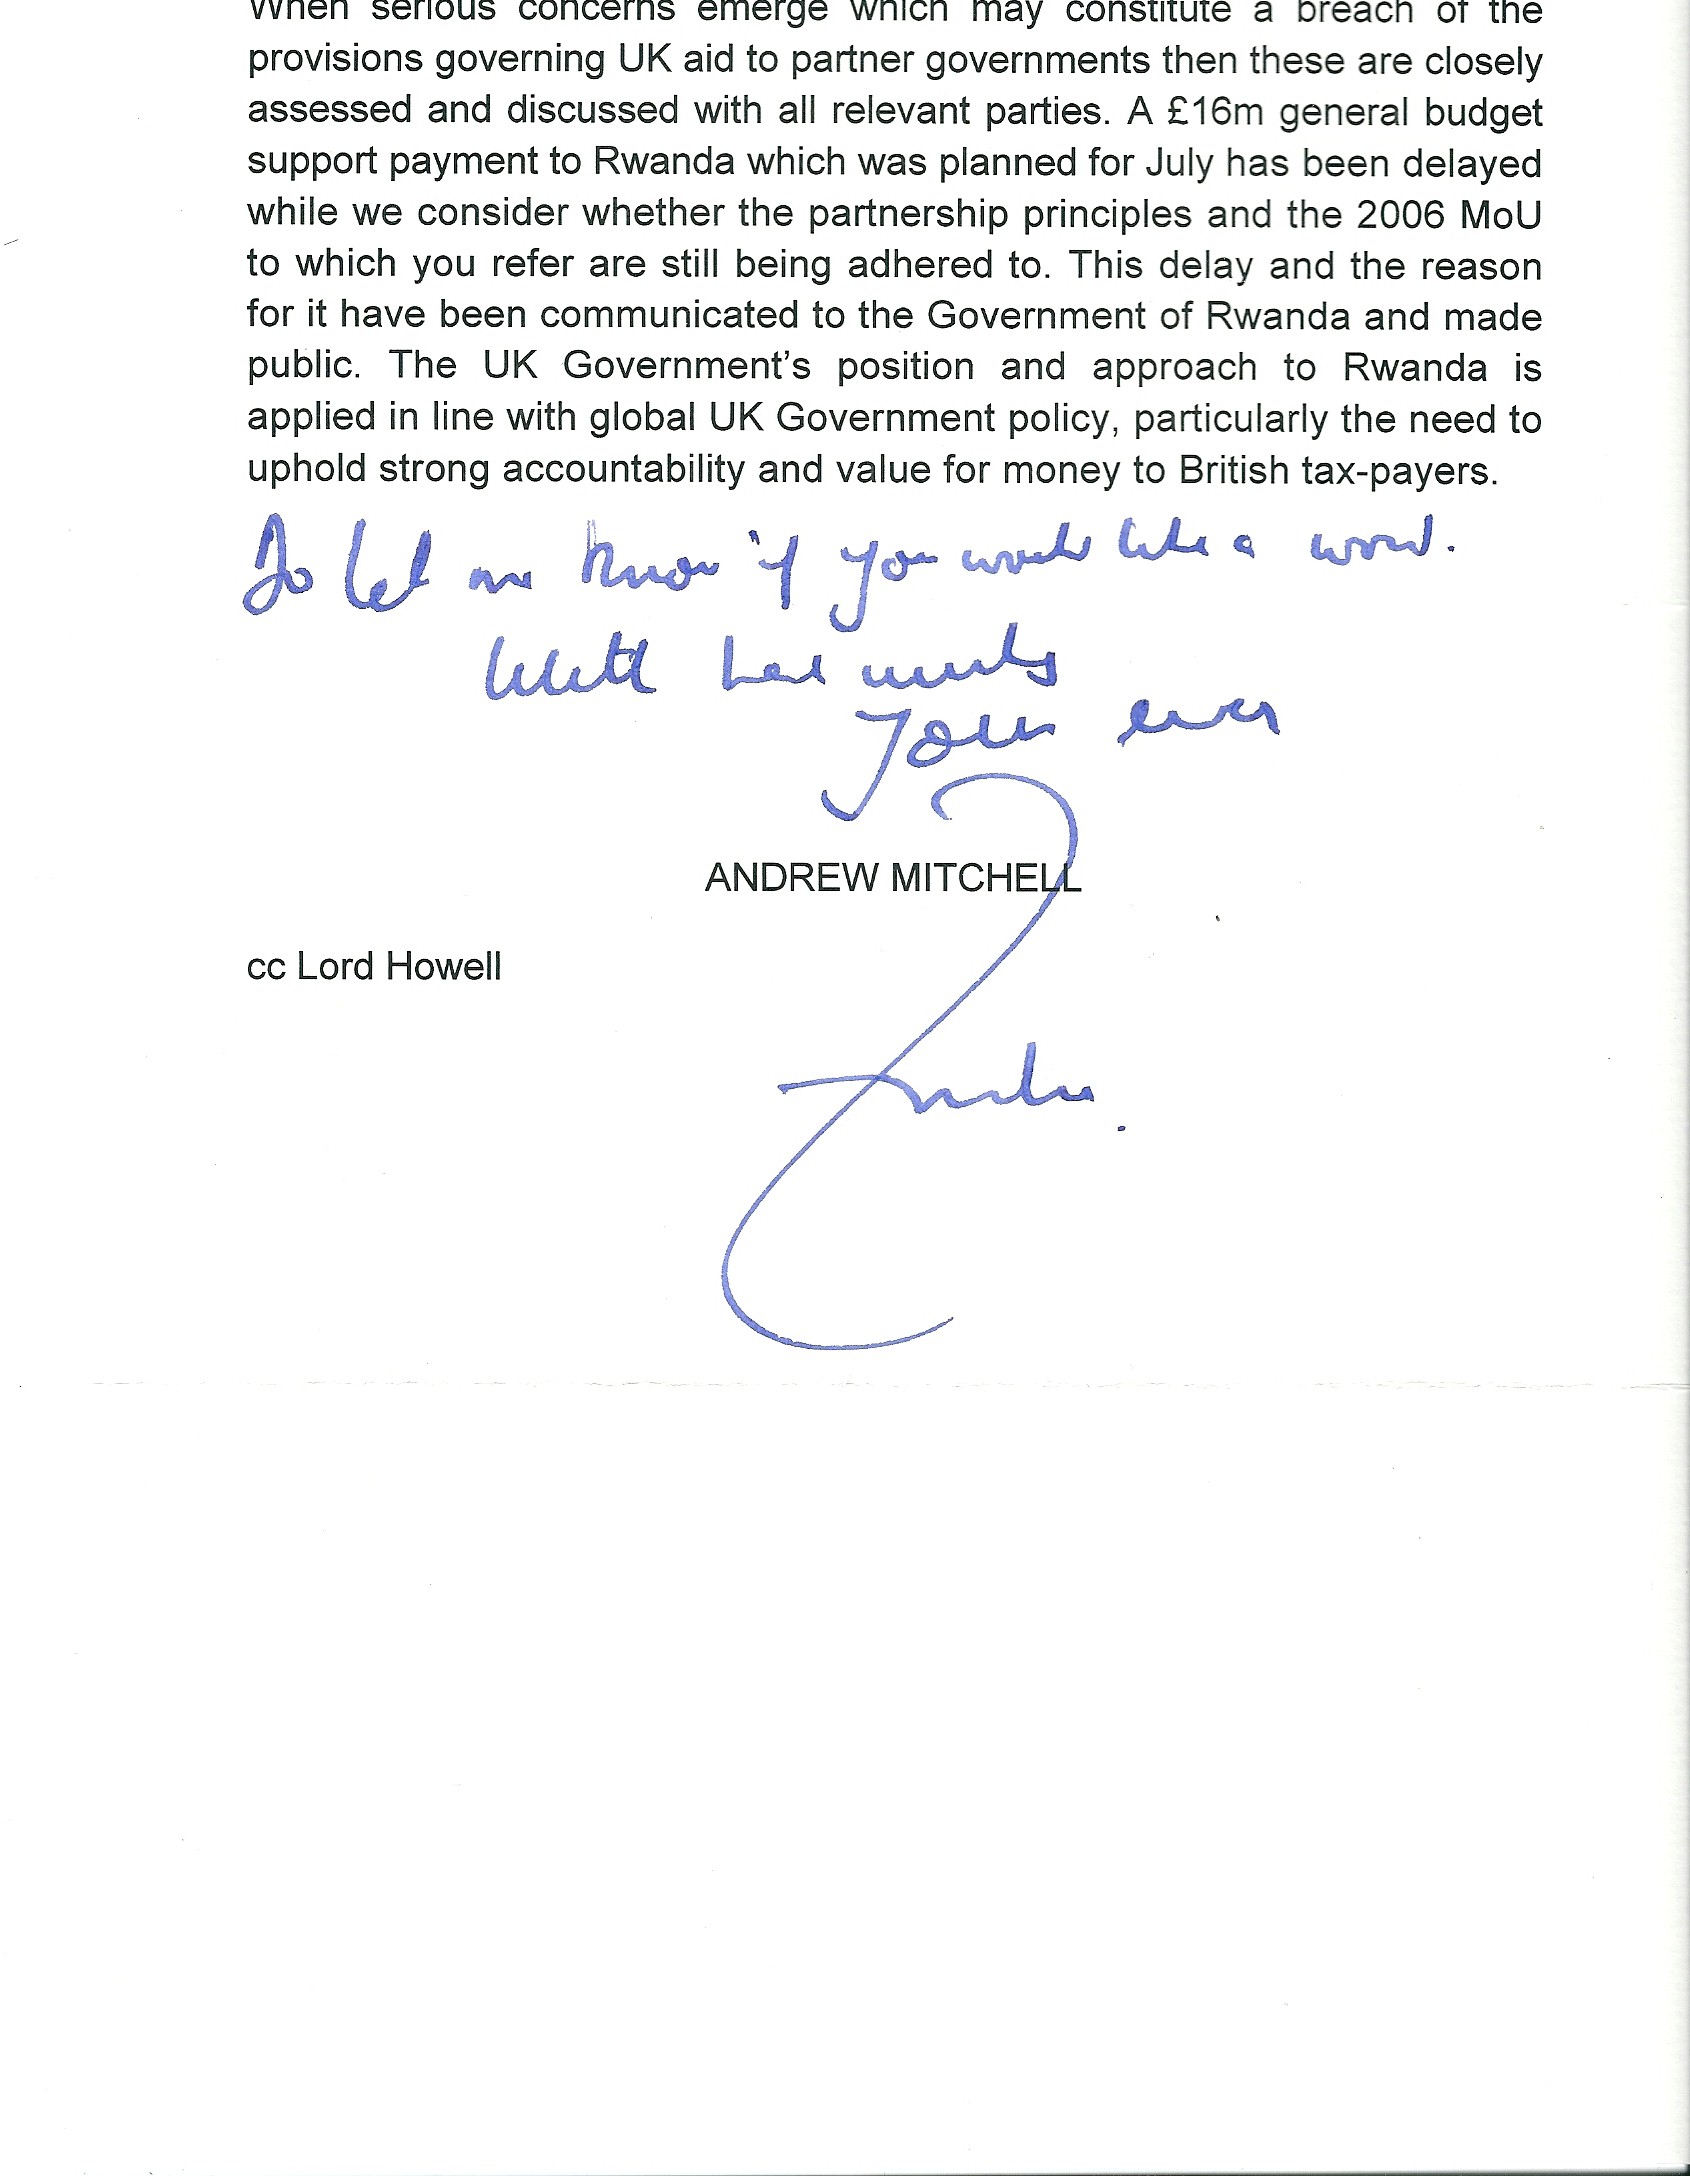 When serious concerns emerge which may constitute a breach of the
provisions governing UK aid to partner governments then these are closely
assessed and discussed with all relevant parties. A £16m general budget
support payment to Rwanda which was planned for July has been delayed
while we consider whether the partnership principles and the 2006 MoU
to which you refer are still being adhered to. This delay and the reason
for it have been communicated to the Government of Rwanda and made
public. The UK Government’s position and approach to Rwanda is
applied in line with global UK Government policy, particularly the need to
uphold strong accountability and value for money to British tax-payers.
Do let me know if you would like a word.
With best wishes
Yours ever
ANDREW MITCHELL
cc Lord Howell
Andrew